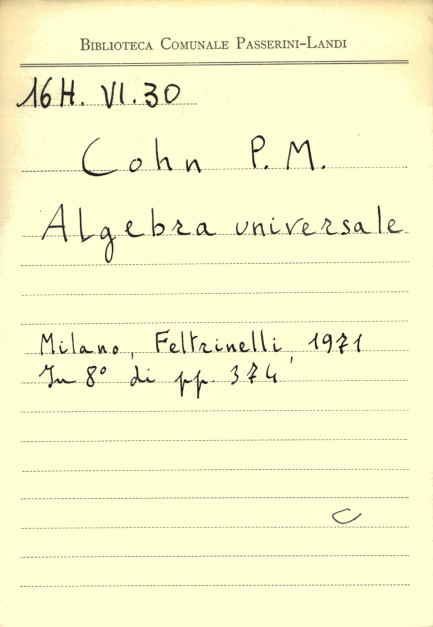 BIBLIOTECA COMUNALE PASSERINI-LANDI
16H. VI. 30
Cohn P. M.
Algebra universale
Milano, Feltrinelli, 1971
In 8° di pp. 374
C